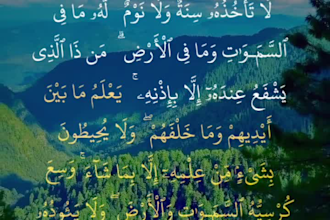 لَا تَأْخُذُهُۥ سِنَةٌ وَلَا نَوْمٌ ۚ لَّهُۥ مَا فِى
ٱلسَّمَـٰوَٰتِ وَمَا فِى ٱلْأَرْضِ ۗ مَن ذَا ٱلَّذِى
يَشْفَعُ عِندَهُۥٓ إِلَّا بِإِذْنِهِۦ ۚ يَعْلَمُ مَا بَيْنَ
أَيْدِيهِمْ وَمَا خَلْفَهُمْ ۖ وَلَا يُحِيطُونَ
بِشَىْءٍ مِّنْ عِلْمِهِۦٓ إِلَّا بِمَا شَآءَ ۚ وَسِعَ
كُرْسِيُّهُ ٱلسَّمَـٰوَٰتِ وَٱلْأَرْضَ ۖ وَلَا يَـُٔودُهُۥ